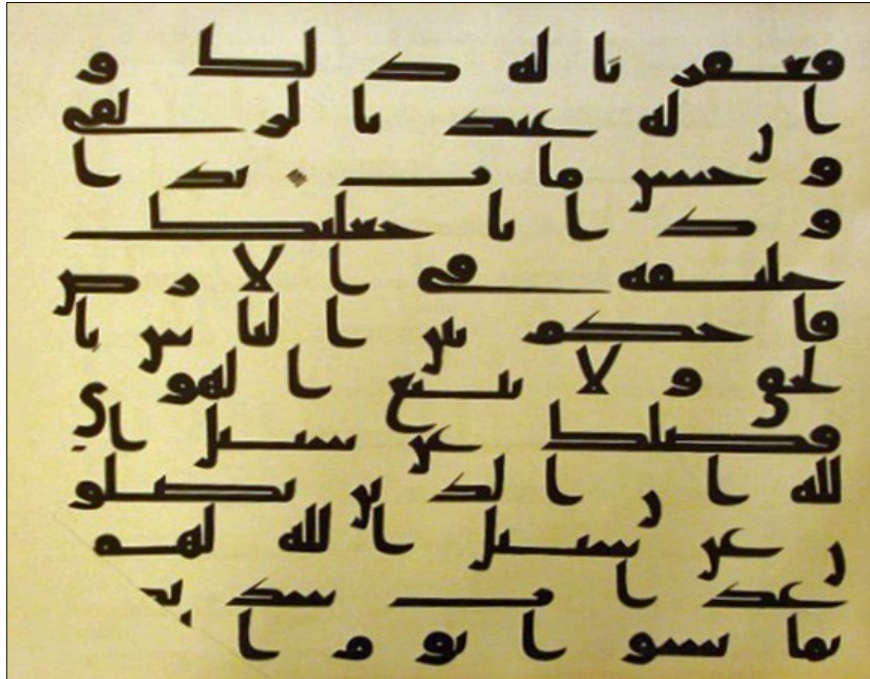 فغفرنا له ذلك و
ان له عندنا لزلفى
و حسن ماب يدا
ود انا جعلنك
خليفة في الارض
فاحكم بين الناس با
لحق ولا تتبع الهوى
فيضلك عن سبيل ا
لله ان الذين يضلو
ن عن سبيل الله لهم
عذاب شديد
بما نسوا يوم ا